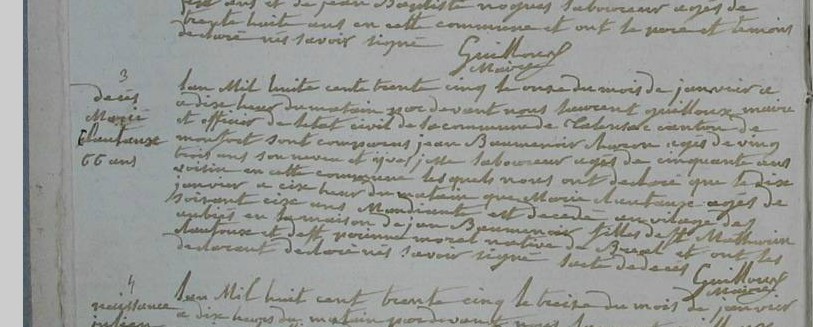 ans et de jean Baptiste noques laboureur agés de
trente huit ans en cette commune et ont le pere et temoins
declaré nés savoir signé
Guilloux
Maire
3
decés
Marie
66 ans
Lan Mil huite cente trente cinq le onze du mois de janvier a
a dixe heur du matain par devant nous laurent guilloux maire
et officier de letat civil de la commune de Talensac canton de
monfort sont comparus jean Baumenoir agés de ving
trois ans son neveu et yves josse laboureur agés de cinquante ans
voisin en cette commune les quels nous ont declaré que le dixe
janvier a cixe heur du matain que Marie agés de
soixant cixe ans Mandiante est decedé au vilage des
en la maison de jan Baumenoir filles de Mathurin
et de perinne moral native de Breal et ont les
declarant declaré nés savoir signé lacte de deces
Guilloux
Maire
4
naissance
julien
Lan Mil huit cent trente cinq le treize du mois de janvier
a dixe heures du matain par devant nous